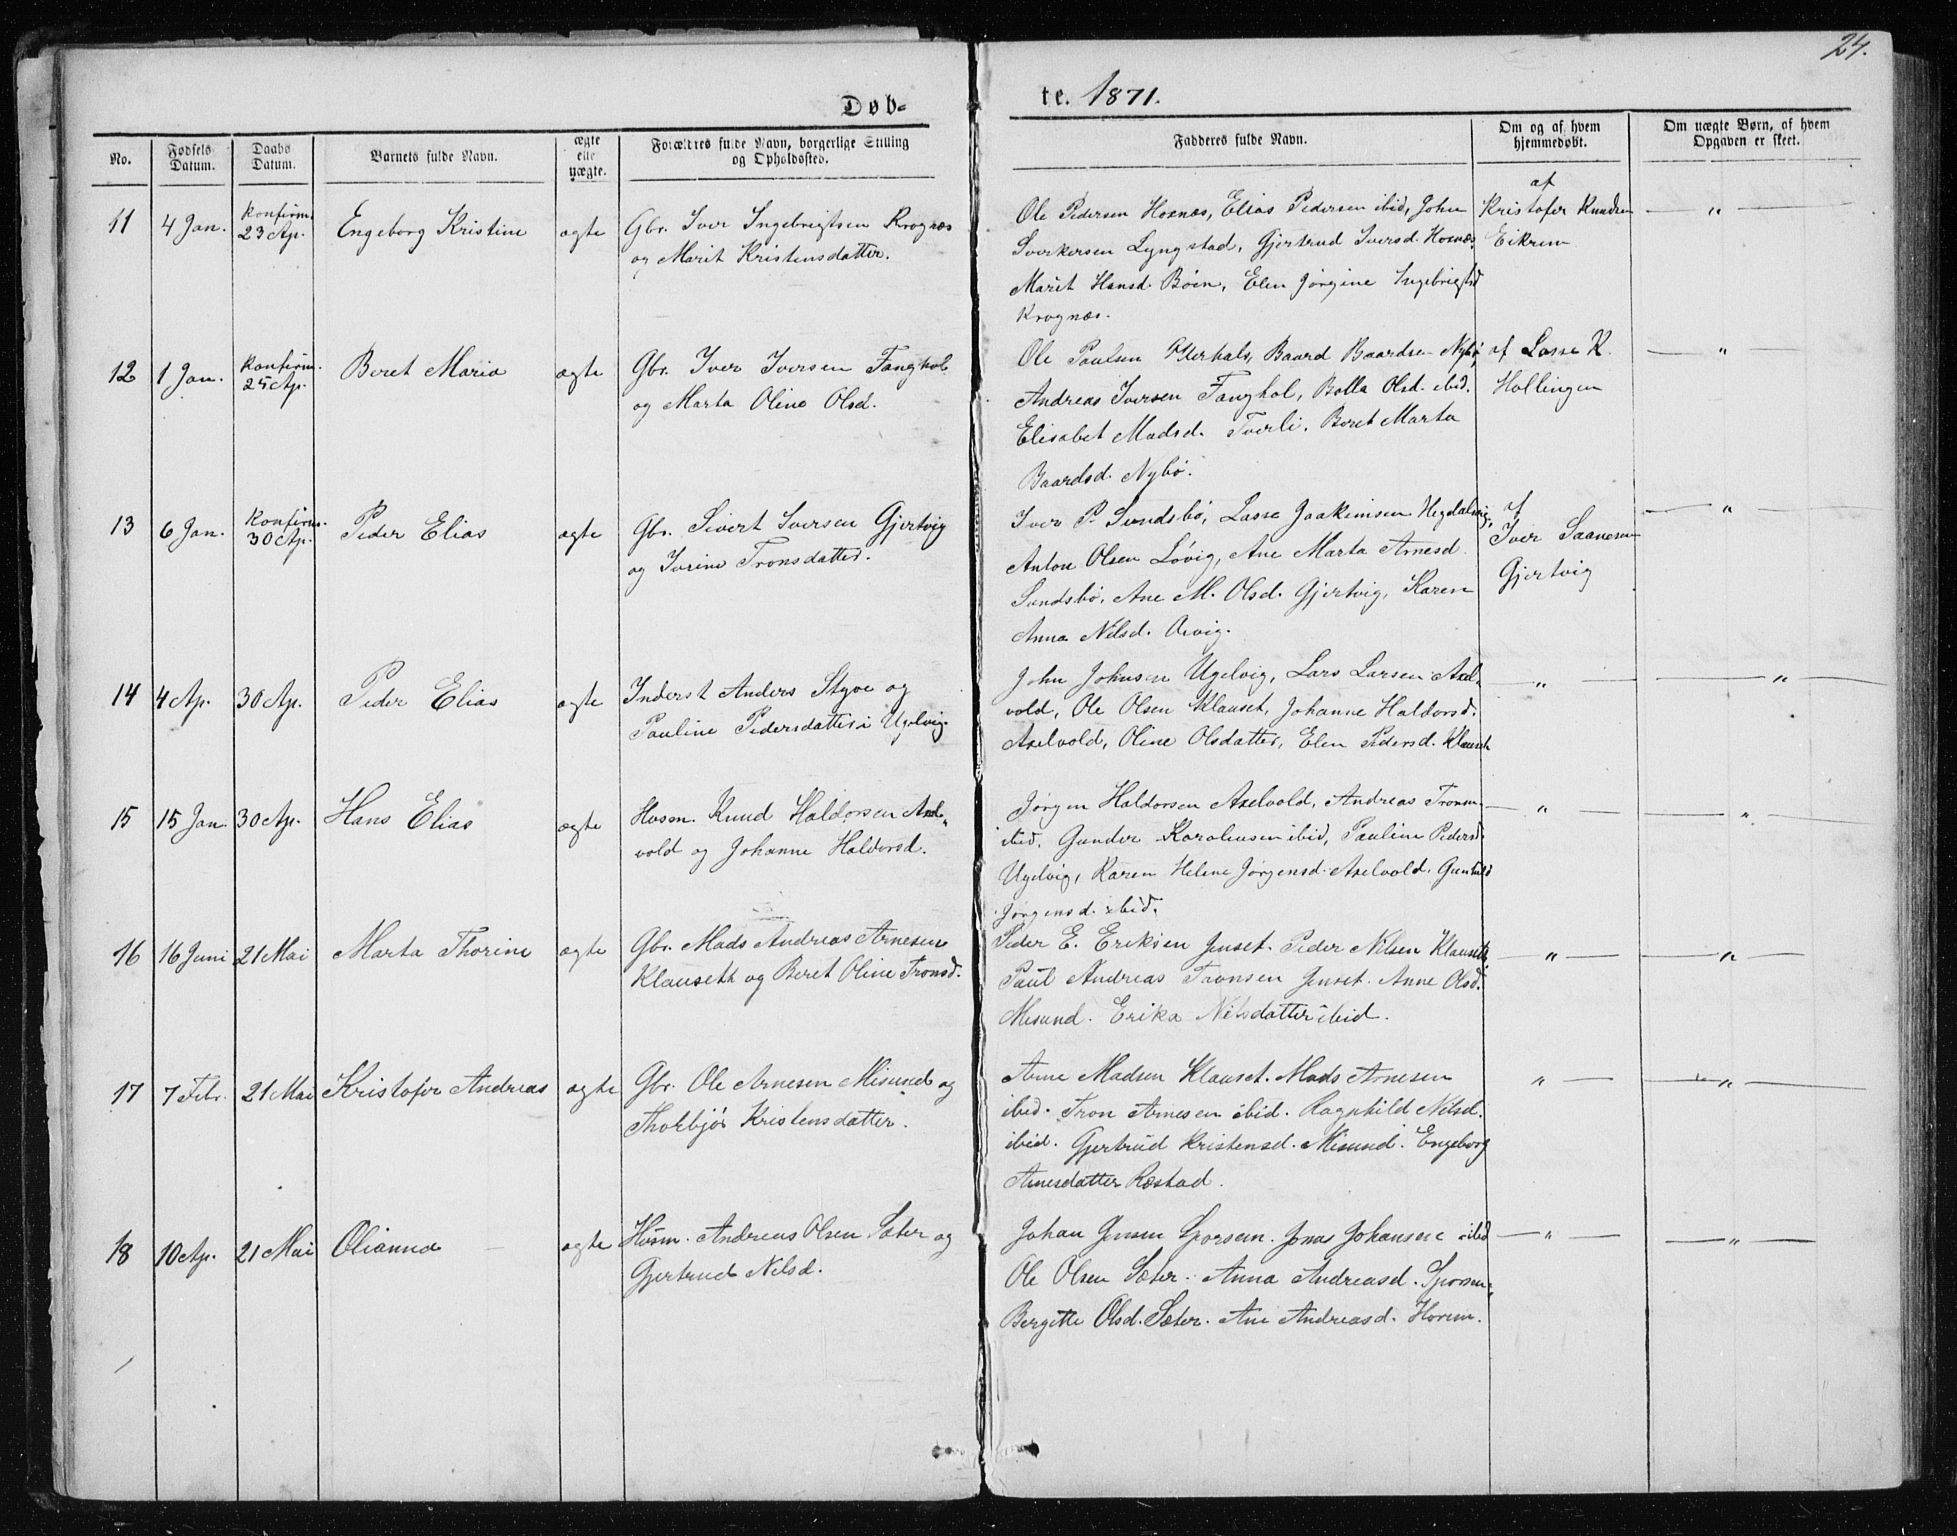 24.
Døb-
te. 1871.
No.
Fødsels Datum.
Daabs Datum.
Barnets fulde Navn.
ægte elle uægte.
Forældres fulde Navn, borgerlige Stilling og Opholdssted.
Fadderes fulde Navn.
Om og af hvem hjemmedøbt.
Om uægte Børn, af hvem Opgaven er skeet.
11 4 Jan. Konfirm. 23 Ap. Engeborg Kristine ægte
Gbr. Iver Ingebrigtsen Krognæs
og Marit Kristensdatter.
Ole Pedersen Hosnæs, Elias Pedersen ibid, John
Sverkersen Lyngstad, Gjertrud Iversd. Hosnæs
Marit Hansd. Böen, Elen Jørgine Ingebrigtsd
Krognæs.
af
Kristofer Knudsen
Eikrem
— „ —
12 1 Jan. Konfirm. 25 Ap. Beret Maria ægte
Gbr. Iver Iversen Fanghol
og Marta Oline Olsd.
Ole Paulsen Yterhals, Baard Baardsen Nybø,
Andreas Iversen Fanghol, Balla Olsd. ibid.
Elisabet Madsd. Tverli. Beret Marta
Baardsd. Nybø.
af Lasse K.
Hollingen
— „ —
13 6 Jan. Konfirm. 30 Ap. Peder Elias ægte
Gbr. Sivert Iversen Gjertvig
og Iverine Tronsdatter.
Iver P. Sundsbø, Lasse Joakimsen Hegdalsvig,
Anton Olsen Løvig, Ane Marta Arnesd.
Sundsbø. Ane M. Olsd. Gjertvig, Karen
Anna Nilsd. Arvig.
af
Iver Saanesen
Gjertvig
— „ —
14 4 Ap. 30 Ap. Peder Elias ægte
Inderst Anders Styve og
Pauline Pedersdatter i Ugelvig.
John Johnsen Ugelvig, Lars Larsen Axel-
vold, Ole Olsen Klauset, Johanne Haldorsd.
Axelvold, Oline Olsdatter, Elen Pedersd. Klauset
— „ —
— „ —
15 15 Jan. 30 Ap. Hans Elias ægte
Husm. Knud Haldorsen Axel-
vold og Johanne Haldorsd.
Jørgen Haldorsen Axelvold, Andreas Tronsen
ibid. Gunder Karolusen ibid, Pauline Pedersd.
Ugelvig, Karen Helene Jørgensd. Axelvold. Gunhild
Jørgensd. ibid.
— „ —
— „ —
16 16 Juni 21 Mai Marta Thorine ægte
Gbr. Mads Andreas Arnesen
Klausett og Beret Oline Tronsd.
Peder E. Eriksen Jenset. Peder Nilsen Klausett.
Paul Andreas Tronsen Jenset. Anne Olsd.
Misund. Erika Nilsdatter ibid.
— „ —
— „ —
17 7 Febr. 21 Mai Kristofer Andreas ægte
Gbr. Ole Arnesen Misund og
Thorbjør Kristensdatter.
Arne Madsen Klauset. Mads Arnesen
ibid. Tron Arnesen ibid. Ragnhild Nilsd.
ibid. Gjertrud Kristensd. Misund. Engeborg
Arnesdatter Røstad.
„ —
— „ —
18 10 Ap. 21 Mai Olianna ægte
Husm. Andreas Olsen Sæter og
Gjertrud Nilsd.
Johan Jensen Sporsem. Jonas Johansen ibid
Ole Olsen Sæter. Anna Andreasd. Sporsem.
Bergitte Olsd. Sæter. Ane Andreasd. Horem.
— „ —
— „ —